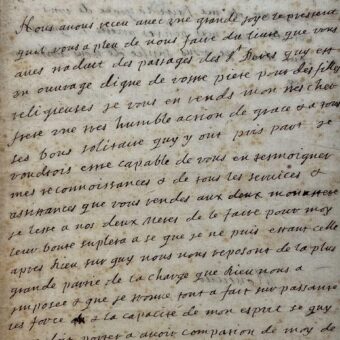 Nous avons receu avec une grande joye le present
quil vous a pleu de nous faire du livre que vous
avez traduit des passages des St Peres quy est
un ouvrage digne de vostre piete pour des filles
religieuses je vous en rends mon tres cher
frere une tres humble action de grace & a tous
ses bons solitaire quy y ont pris part je
voudrois estre capable de vous en tesmoigner
mes reconnoissances & de tous les services &
asistances que vous rendez aux deux monastere
je lesse a nos deux Meres de le faire pour moy
leur bonte suplera a se que je ne puis estant celle
apres dieu sur quy nous nous reposons de la plus
grande partie de la charge que dieu nous a
imposée & que je trouve tout a fait surpassante
ces force & a la capacite de mon esprit se quy
porter a avoir compassion de moy de